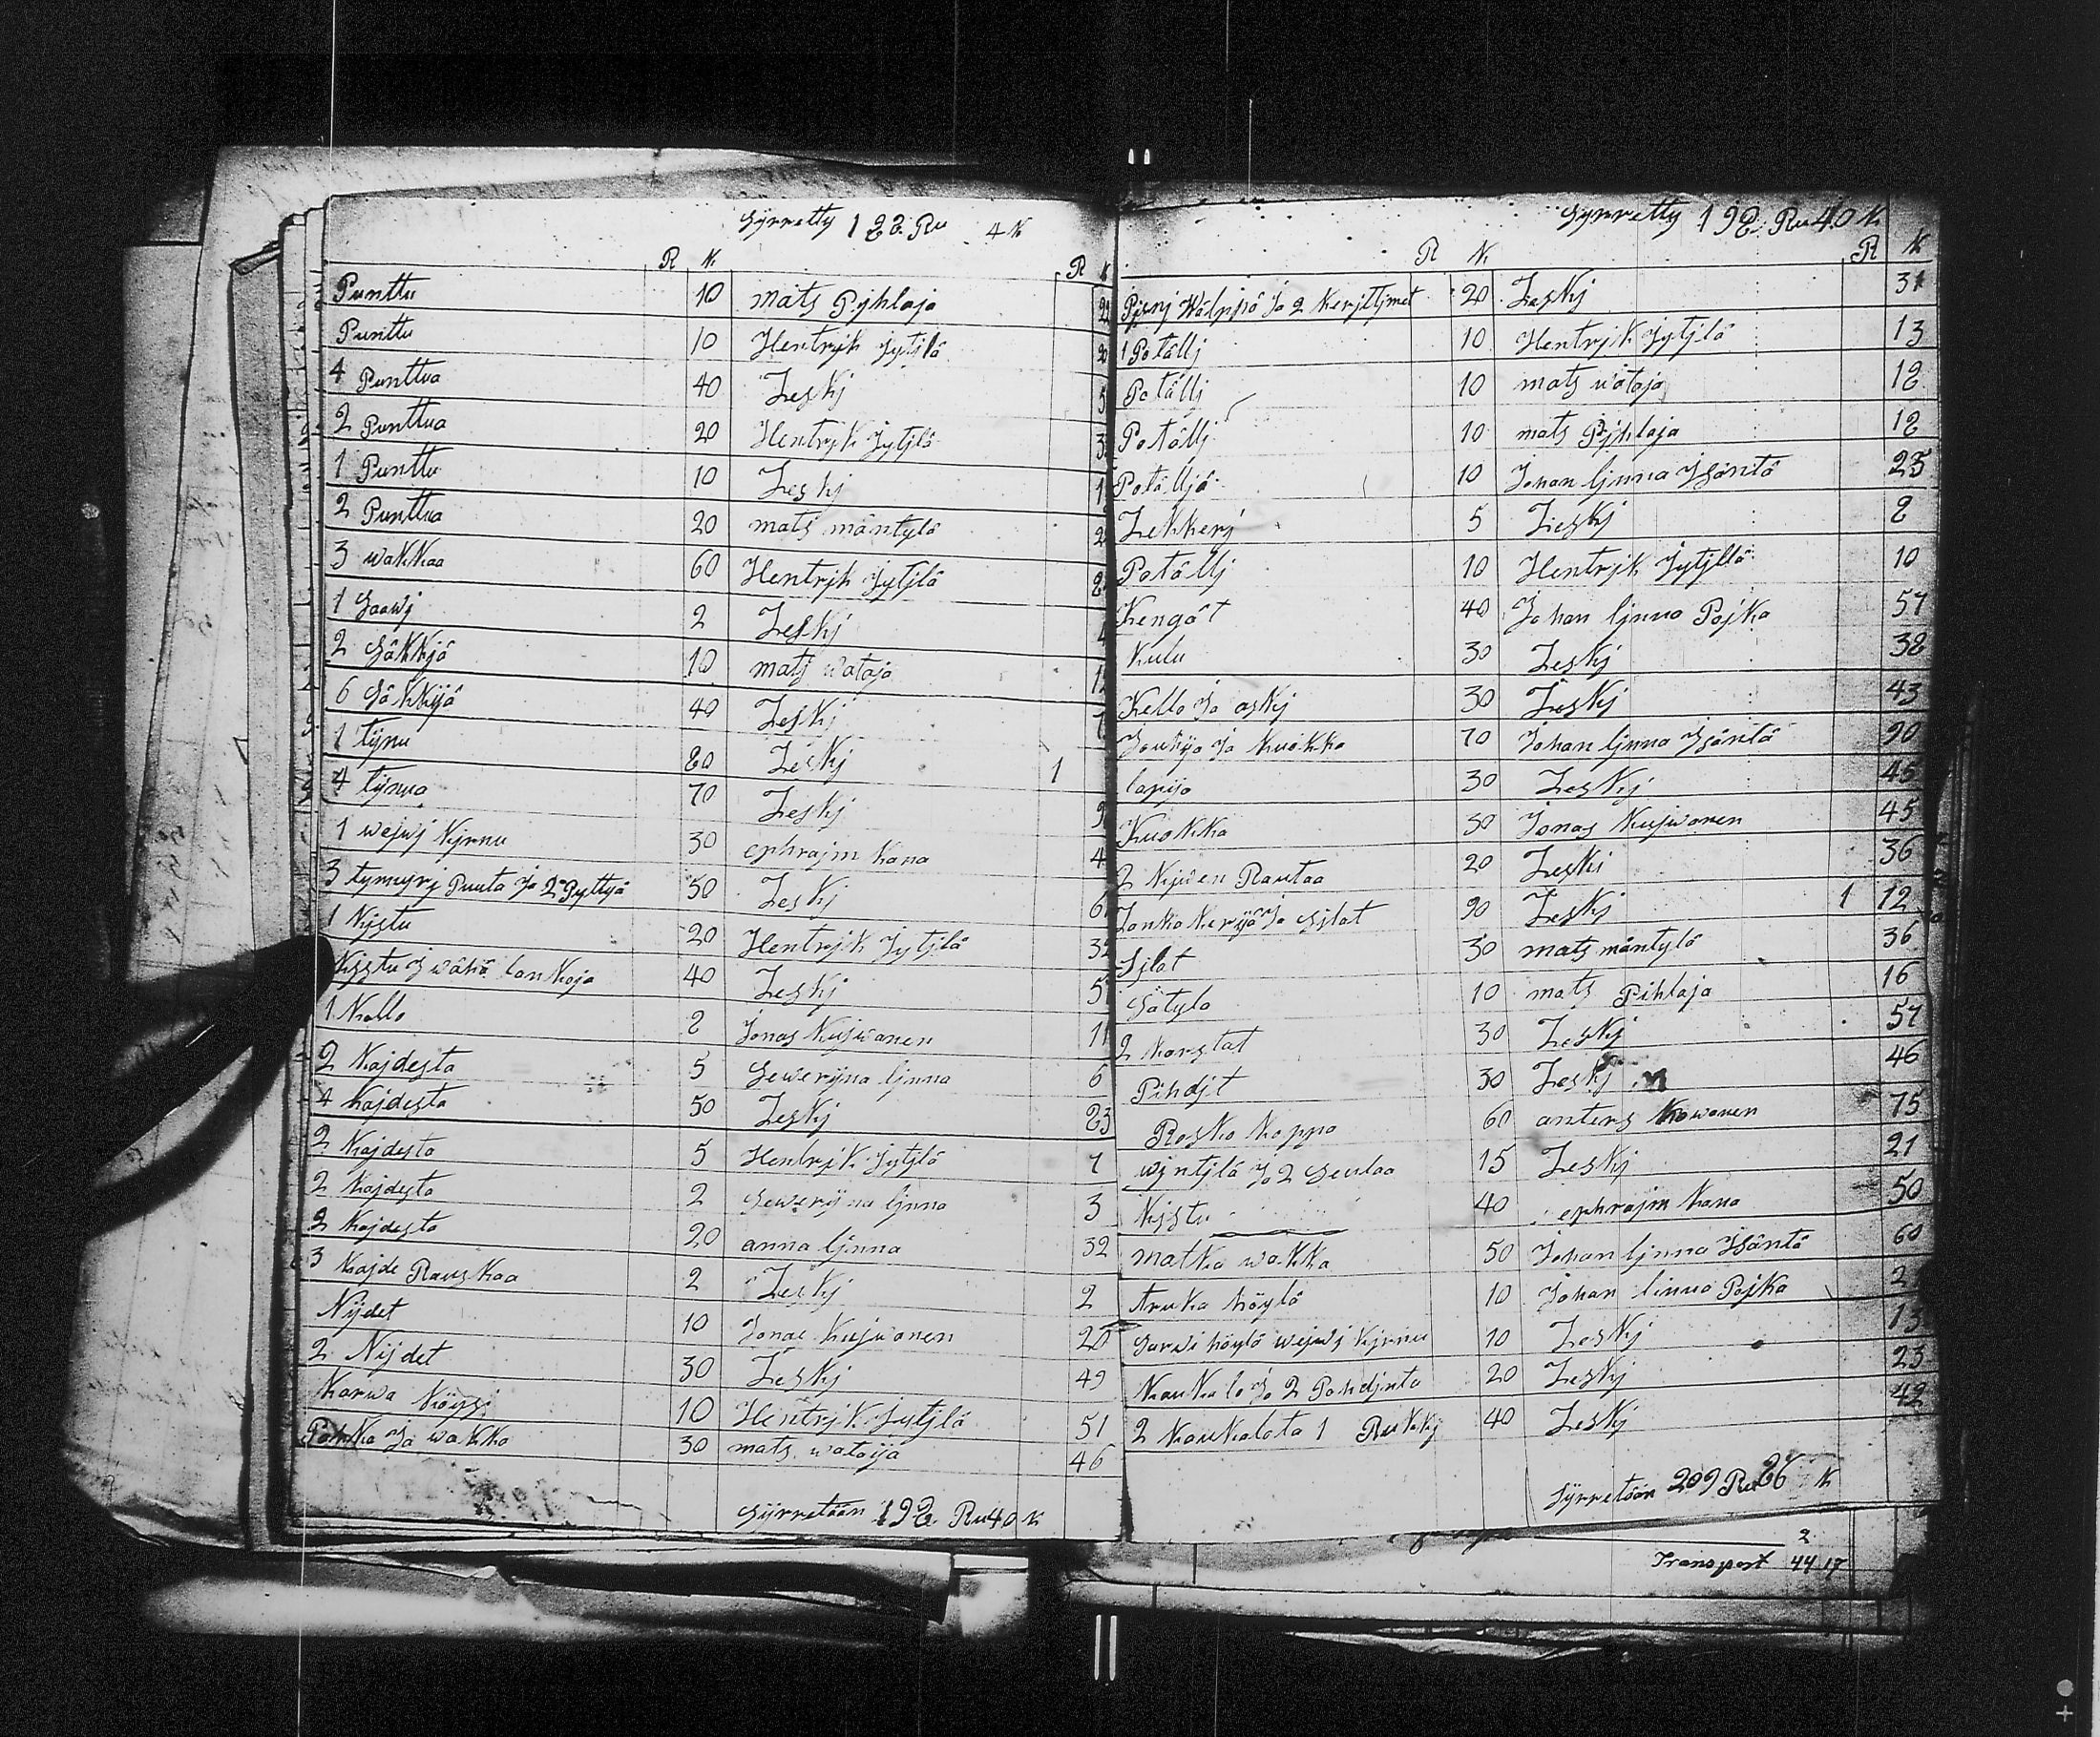 Syrretty 182. Ru 4 K
R K. R K
Punttu 10 mats Pjhlaja
Punttu 10 Hentrjk Jytjlä
4 Punttua 40 Leskj
2 Punttua 20 Hentrjk Jytjlä
1 Punttu 10 Leskj
2 Punttua 20 mats mäntylä
3 wakkaa 60 Hentrjk Jytjlä
1 Saawj 2 Leskj
2 Säkkjä 10 mats wataja
6 Säkkijä 40 Leskj
1 tijnu 80 Leskj 1
4 tijnua 70 Leskj
1 wejwj Kjrnu 30 ephrajm Kana 4
3 Puuta Ja 2 Pyttyä 50 Leskj
1 Kjstu 20 Hentrjk Jytjlä 32
Kjstu J wähä lankoja 40 Leskj
1 Kello 2 Jonas Kujwanen 11
2 Kajdesta 5 Sewerijna ljnna 6
4 Kajdesta 50 Leskj 23
2 Kajdesta 5 Hentrjk Jytjlä 7
2 Kajdesta 2 Sewerijna ljnna 3
2 Kajdesta 20 anna ljnna 32
3 Kajde Rauskaa 2 Leskj 2
Nijdet 10 Jonas Kujwanen 20
2 Nijdet 30 Leskj 49
Karwa Köysj 10 Hentrjk Jytjlä 51
Ja wakka 30 mats wataija 46
Syrretään 192 Ru 40 K
Syrretty 192. Ru 40 K
R K. R K
Pjenj Wälppä Ja 2 Kerjttjmet 20 Leskj 31
1 Potällj 10 Hentrjk Jytjlä 13
Potällj 10 mats wataja 12
Potällj 10 mats Pjhlaja 12
Potälljä 10 Johan ljnna Jsäntä 25
Lekkerj 5 Leskj 8
Potällj 10 Hentrjk Jytjllä 10
Kengät 40 Johan ljnna Pojka 57
Kulu 30 Leskj 38
Kello Ja askj 30 Leskj 43
Joukija Ja Kuokka 70 Johan ljnna Jsäntä 90
lapija 30 Leskj 45
Kuokka 30 Jonas Kujwanen 45
2 Kjwen Rautaa 20 Leskj 36
Lanka Kerijä Ja Sjlat 90 Leskj 1 12
Sjlat 30 mats mäntylä 36
Sätyla 10 mats Pihlaja 16
2 Karstat 30 Leskj 57
Pihdjt 30 Leskj 46
Roska Koppa 60 anters Kowanen 75
wjntjlä Ja 2 Seulaa 15 Leskj 21
Kjstu 40 ephrajm Kana 50
matka wakka 50 Johan ljnna Jsäntä 60
truka höylä 10 Johan linna Pojka
Sarwi höylä wejwj Kjrnu 10 Leskj 13
Kaukalo Ja 2 Pohdjnta 20 Leskj 23
2 Kaukalota 1 Rukkj 40 Leskj 42
Syrretään 209 Ru 26 K
2
Transport 44 17